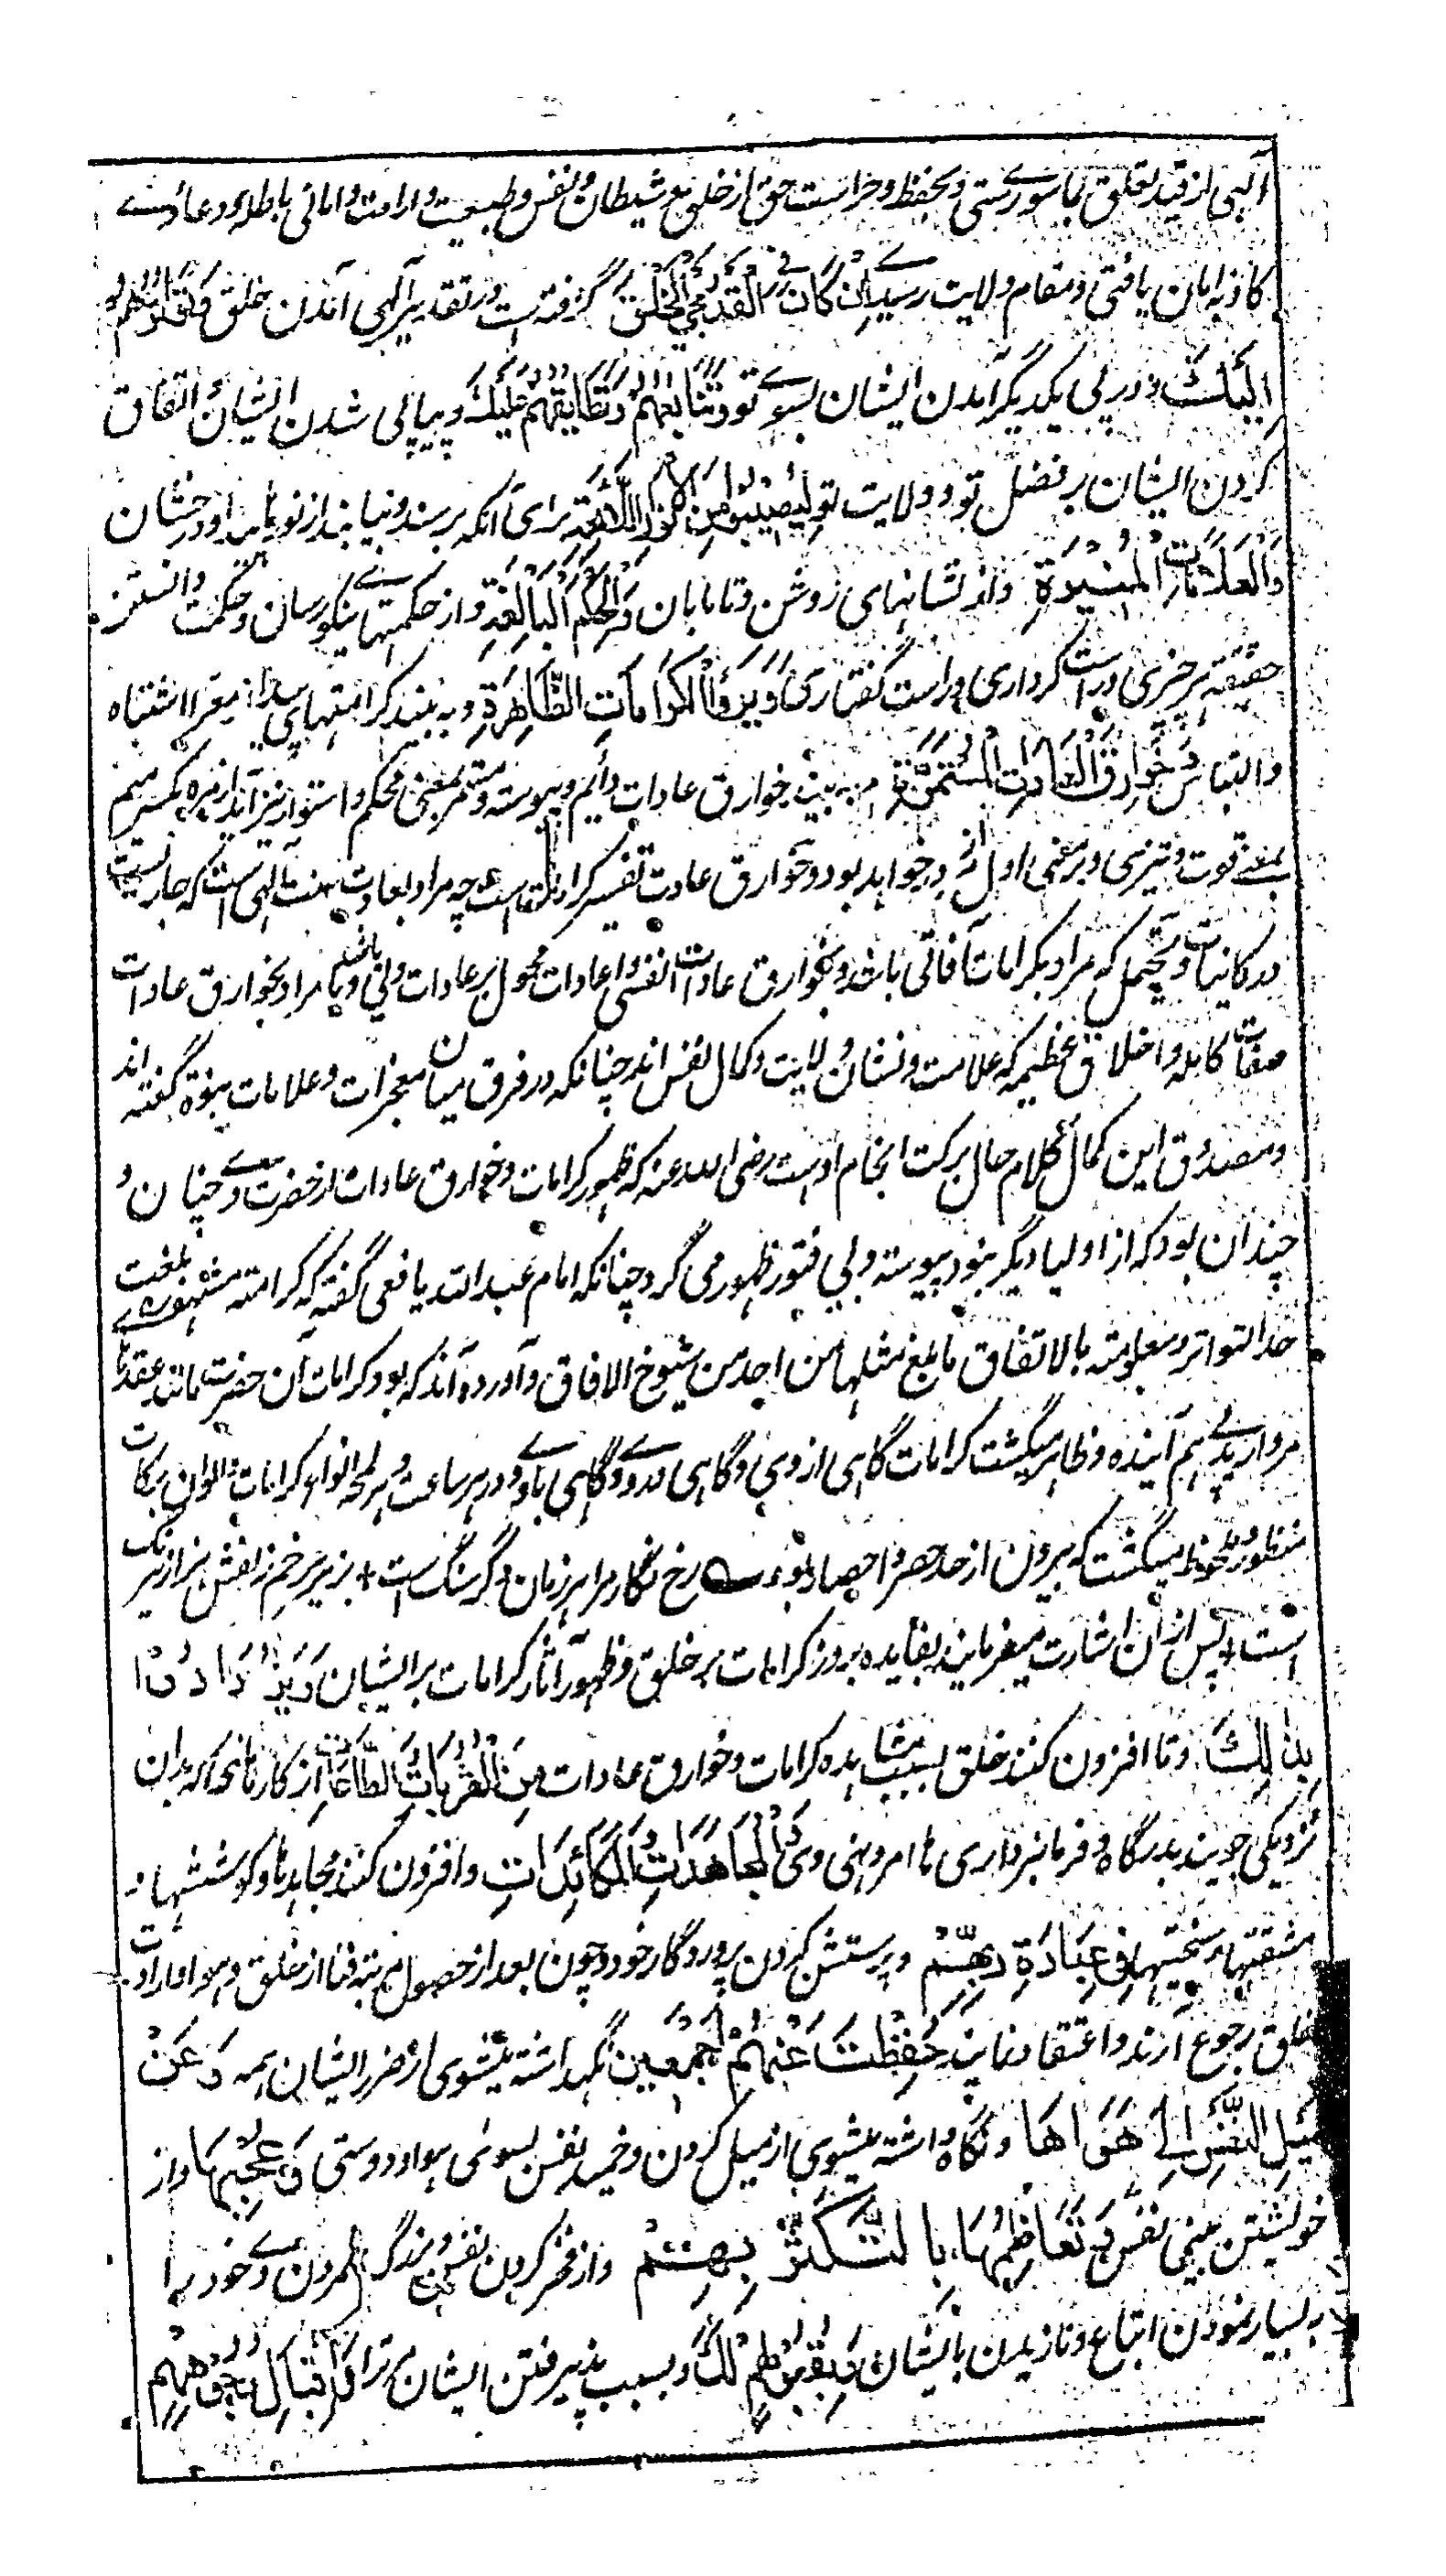 آلهی از قید تعلق بماسوے رستی و بحفظ و حراست حق از خلق مع شیطان و نفس و طبیعت و ارادت و امانی باطله و عادتے
کاذبه امان یافتی و بمقام ولایت رسیدے اِن کَانَ فِی الْقَدَرِ مَجِیُٔ الْخَلْقِ گر رفته است در تقدیر آلهی آمدن خلق وَتَتَابُعُهُمْ
اِلَیْکَ و در پی یکدیگر آمدن ایشان بسوے تو وَتَتَابُعُهُمْ وَتَطَابُقُهُمْ عَلَیْکَ و پیاپی شدن ایشان و اتفاق
کردن ایشان بر فضل تو و ولایت تو لِیُصِیْبُوْا مِنَ الْاَنْوَارِ اللَّامِعَةِ برای آنکه برسند و بیابند از نورهای درخشان
وَالْعَلَامَاتِ الْمُنِیْرَةِ و از نشانهای روشن و تابان وَالْحِکَمِ الْبَالِغَةِ و از حکمتهاے نیکو رسان و حکمت دانستن
حقیقة هر چیزی و راست کرداری و راست گفتاری وَیَرَوُا الْکَرَامَاتِ الظَّاهِرَةِ و به بینند کرامتهای پیدا از معرا اشتباه
والتباس وَخَوَارِقَ الْعَادَاتِ الْمُسْتَمِرَّةِ و به بینند خوارق عادات دائم و پیوسته و مستمر بمعنی محکم و استوار نیز آید از مره بکسر میم
بمعنے قوت و تیزی و بر معنی اول از خواهد بود و خوارق عادت تفسیر کرامات است چه مراد بعادت سنت آلهی است که جاریست
در کائنات و یحتمل که مراد بکرامات آفاقی باشد و بخوارق عادات انفسی و اعادات محمول بر عادات ولی باشد و یا مراد بخوارق عادات
صفات کامله و اخلاق عظیمه که علامت و نشان ولایت و کمال نفس اند چنانکه در فرق میان معجزات و علامات نبوة گفته اند
و مصدوق این کمال کلام حال برکت انجام اوست رضی الله عنه که ظهور کرامات و خوارق عادات از حضرت وے چنان و
چندان بود که از اولیا دیگر نبود پیوسته و بی فتور ظهور می گرد چنانکه امام عبدالله یافعی گفته که کرامته مشهورة بلغت
حد التواتر و معلومة بالاتفاق ما بلغ مثلها من احد من شیوخ الافاق و آورده اند که بود کرامات آن حضرت مانند عقد
مرواریدے هم آینده و ظاهر میگشت کرامات گاهی از وی و گاهی بدوے و گاهی باوے و در هر ساعت و هر لمحه انواع کرامات و الوان برکات
منظور و ملحوظ میگشت که بیرون از حد حصر و احصا بودے رخ نگار مرا هر زمان دگر رنگ است * بزیر هر خم زلفش هزار نیرنگ
است * پس از آن اشارت میفرمایند بفایده بروز کرامات بر خلق و ظهور آثار کرامات بر ایشان وَیَزْدَادُوْا
بِذٰلِکَ و تا افزون کنند خلق بسبب مشاهده کرامات و خوارق عادات مِنَ الْقُرُبَاتِ وَالطَّاعَاتِ از کارهائیکه بدان
نزدیکی جویند بدرگاه و فرمانبرداری ها امر و نهی وی وَالْمُجَاهَدَاتِ وَالْمُکَابَدَاتِ و افزون کنند مجاهدها و کوششها و
مشقتها و سختیها فِیْ عِبَادَةِ رَبِّهِمْ و پرستش کردن پروردگار خود و چون بعد از حصول مرتبه فنا از خلق و هوا و ارادت
خلق رجوع آرند و اعتقاد نمایند حُفِظْتَ عَنْهُمْ اَجْمَعِیْنَ نگهداشته میشوی از ضرر ایشان همه وَعَنْ
مَیْلِ النَّفْسِ اِلٰے هَوَاهَا و نگاه داشته میشوی از میل کردن و خمید نفس بسوی هوا و دوستی وَعُجْبِهَا و از
خویشتن بینی نفس وَتَعَاظُمِهَا بِالتَّکَثُّرِ بِهِمْ و از فخر کردن نفس و بزرگ شمردن وے خود را
به بسیار نمودن اتباع و نازیدن بایشان وَبِقَبُوْلِهِمْ لَکَ و بسبب پذیرفتن ایشان مر ترا وَاِقْبَالِ وُجُوْهِهِمْ